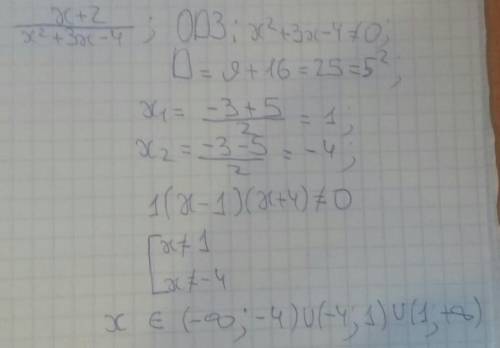 x+2 / x²+3x-4 ; ОДЗ: x²+3x-4≠0;
D=9+16=25=5²;
x₁= -3+5 / 2 = 1;
x₂= -3-5 / 2 = -4;
1(x-1)(x+4)≠0
[x≠1
x≠-4
x ∈ (-∞;-4)∪(-4;1)∪(1;+∞)